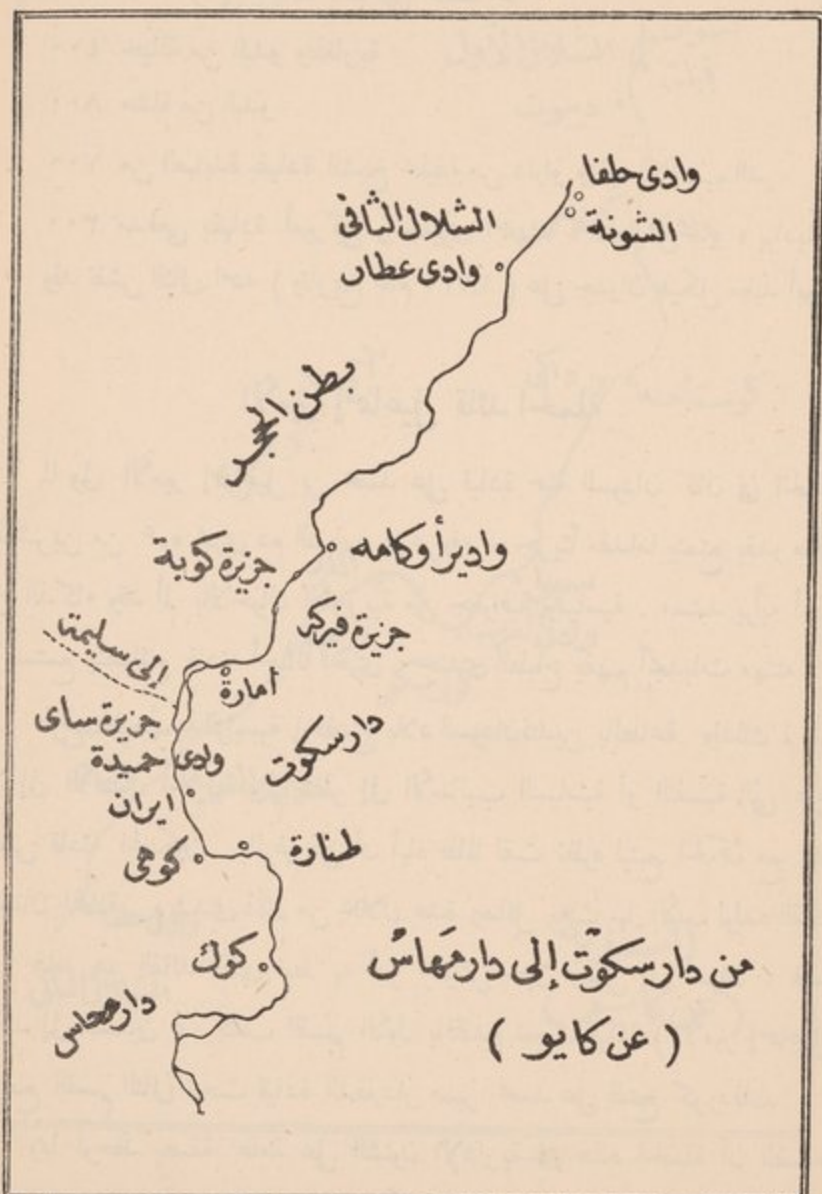 وادى حلفا
الشونة
الشلال الثانى
وادى عطار
بطن الحجر
وادير أوكامه
جزيرة كوبة
جزيرة فيركر
إلى سليمة
أمارة
جزيرة ساى
دار سكوت
وادى حميدة
ايران
طنارة
كوهى
كوك
من دار سكوت إلى دار مَهاسْ
دار محاس
( عن كايو )